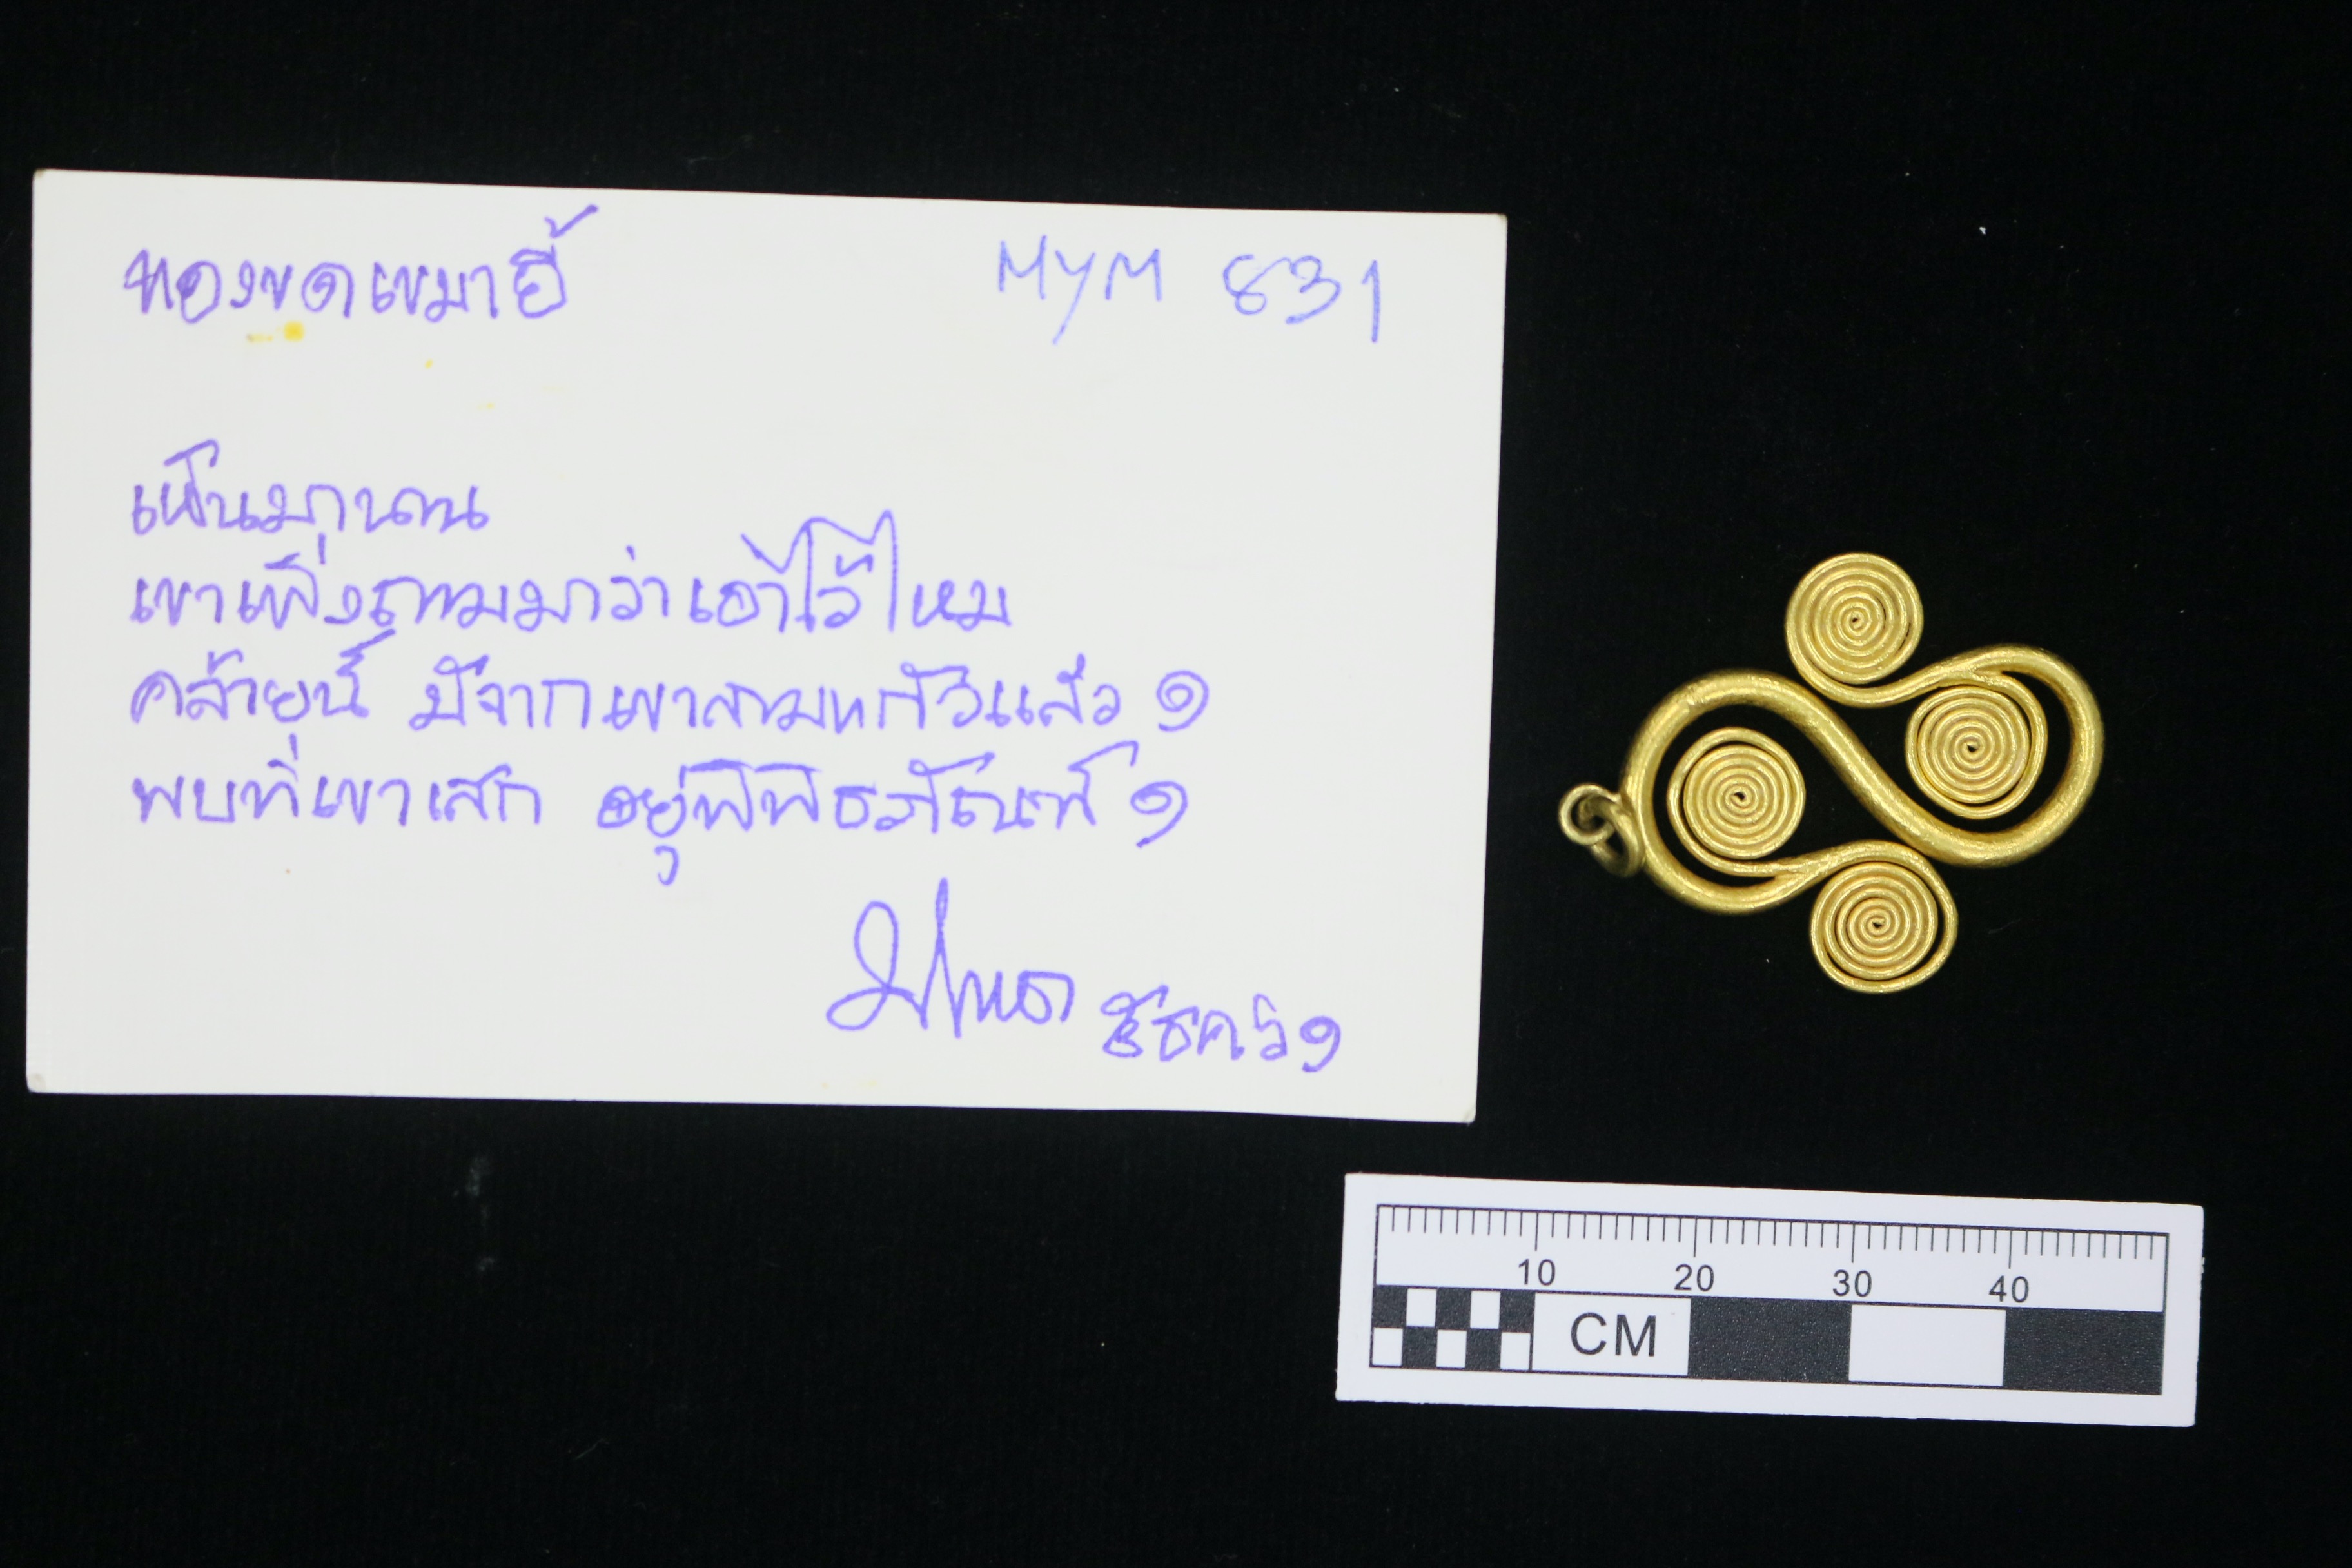 ทองขดเขมายี้
MYM 831
เห็นมานาน
เขาเพิ่งถามมาว่าเอาไว้ไหม
คล้ายนี้ มีจากเขาสามแก้วแล้ว ๑
พบที่เขาเสก อยู่พิพิธภัณฑ์ ๑
10 20 30 40
CM